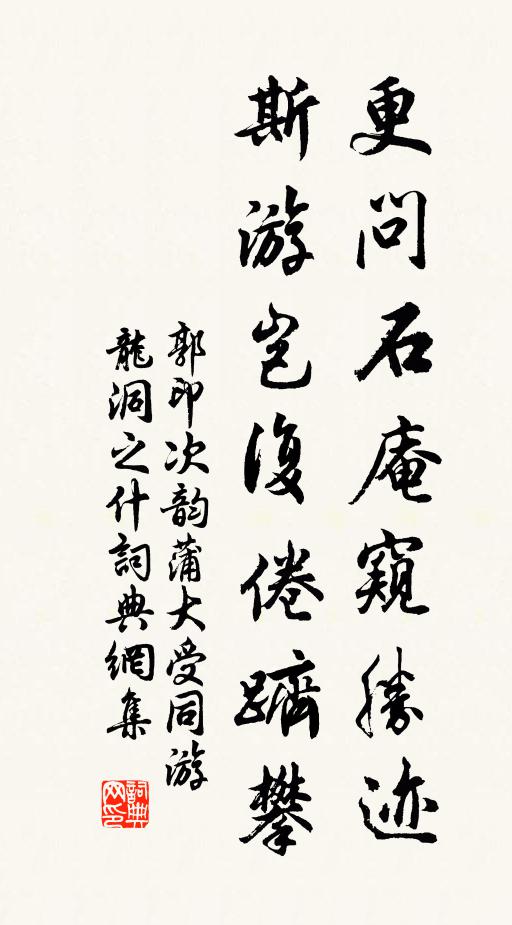 更問石庵窺勝迹
斯游豈復倦躋攀
郭印次韵蒲大受同游
龍洞之什詞典網集
詞典网印